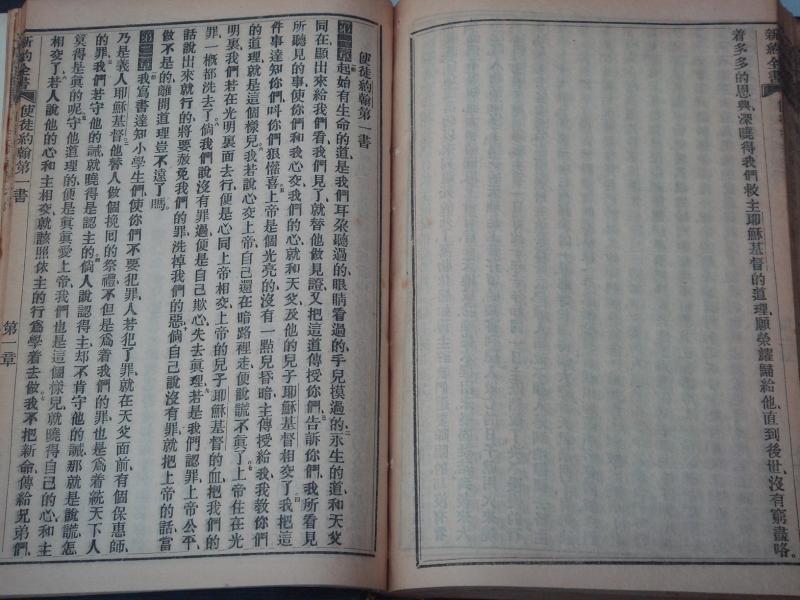 新約全書
着多多的恩典、深曉得我們救主耶穌基督的道理、願榮耀歸給他、直到後世、沒有窮盡咯。
使徒約翰第一書
第一章起始有生命的道是我們耳朶聽過的、眼睛看過的、手兒摸過的、永生的道和天父
同在顯出來給我們看我們見了就替他做見證又把這道傳授你們、告訴你們、我所看見
所聽見的事使你們和我心交我們的心就和天父及他的兒子耶穌基督相交了、我把這
件事達知你們、呌你們狠懽喜上帝是個光亮的沒有一點兒昏暗主傳授給我我敎你們
的道理就是這個樣兒我若說心交上帝、自己還在暗路裡走便說謊不眞了、上帝住在光
明裏我們若在光明裏面去行、便是心同上帝相交上帝的兒子耶穌基督的血、把我們的
罪一概都洗去了、倘我們說沒有罪過、便是自己欺心失去眞理若是我們認罪上帝公平、
話說出來就行的、將要赦免我們的罪洗掉我們的惡、倘自己說沒有罪就把上帝的話當
做不是的、離開道理豈不遠了嗎。
第二章我寫書達知小學生們、使你們不要犯罪人若犯了罪就在天父面前有個保惠師、
乃是義人耶穌基督他替人做個挽囘的祭禮不但是爲着我們的罪也是爲着統天下人
的罪、我們若守他的誡就曉得是認主的、倘人說認得主却不肯守他的誡那就是說謊、怎
算得是眞的呢、守他道理的便是眞眞愛上帝、我們也是這個樣兒就曉得自己的心和主
相交了、若人說他的心和主相交、就該照依主的行爲學着去做、我不把新命傳給兄弟們、
新約全書
使徒約翰第一書
第一章